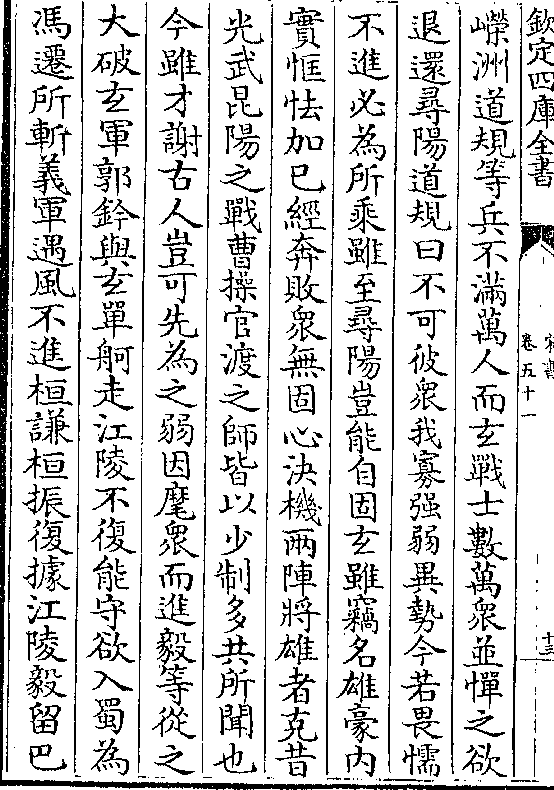 欽定四庫全書
宋書
卷五十一
十三
嶸洲道規等兵不滿萬人而玄戰士數萬衆並憚之欲
退還尋陽道規曰不可彼衆我寡强弱異勢今若畏懦
不進必為所乘雖至尋陽豈能自固玄雖竊名雄豪内
實恇怯加已經奔敗衆無固心決機兩陣將雄者克昔
光武昆陽之戰曹操官渡之師皆以少制多共所聞也
今雖才謝古人豈可先為之弱因麾衆而進毅等從之
大破玄軍郭銓與玄單舸走江陵不復能守欲入蜀為
馮遷所斬義軍遇風不進桓謙桓振復據江陵毅留巴